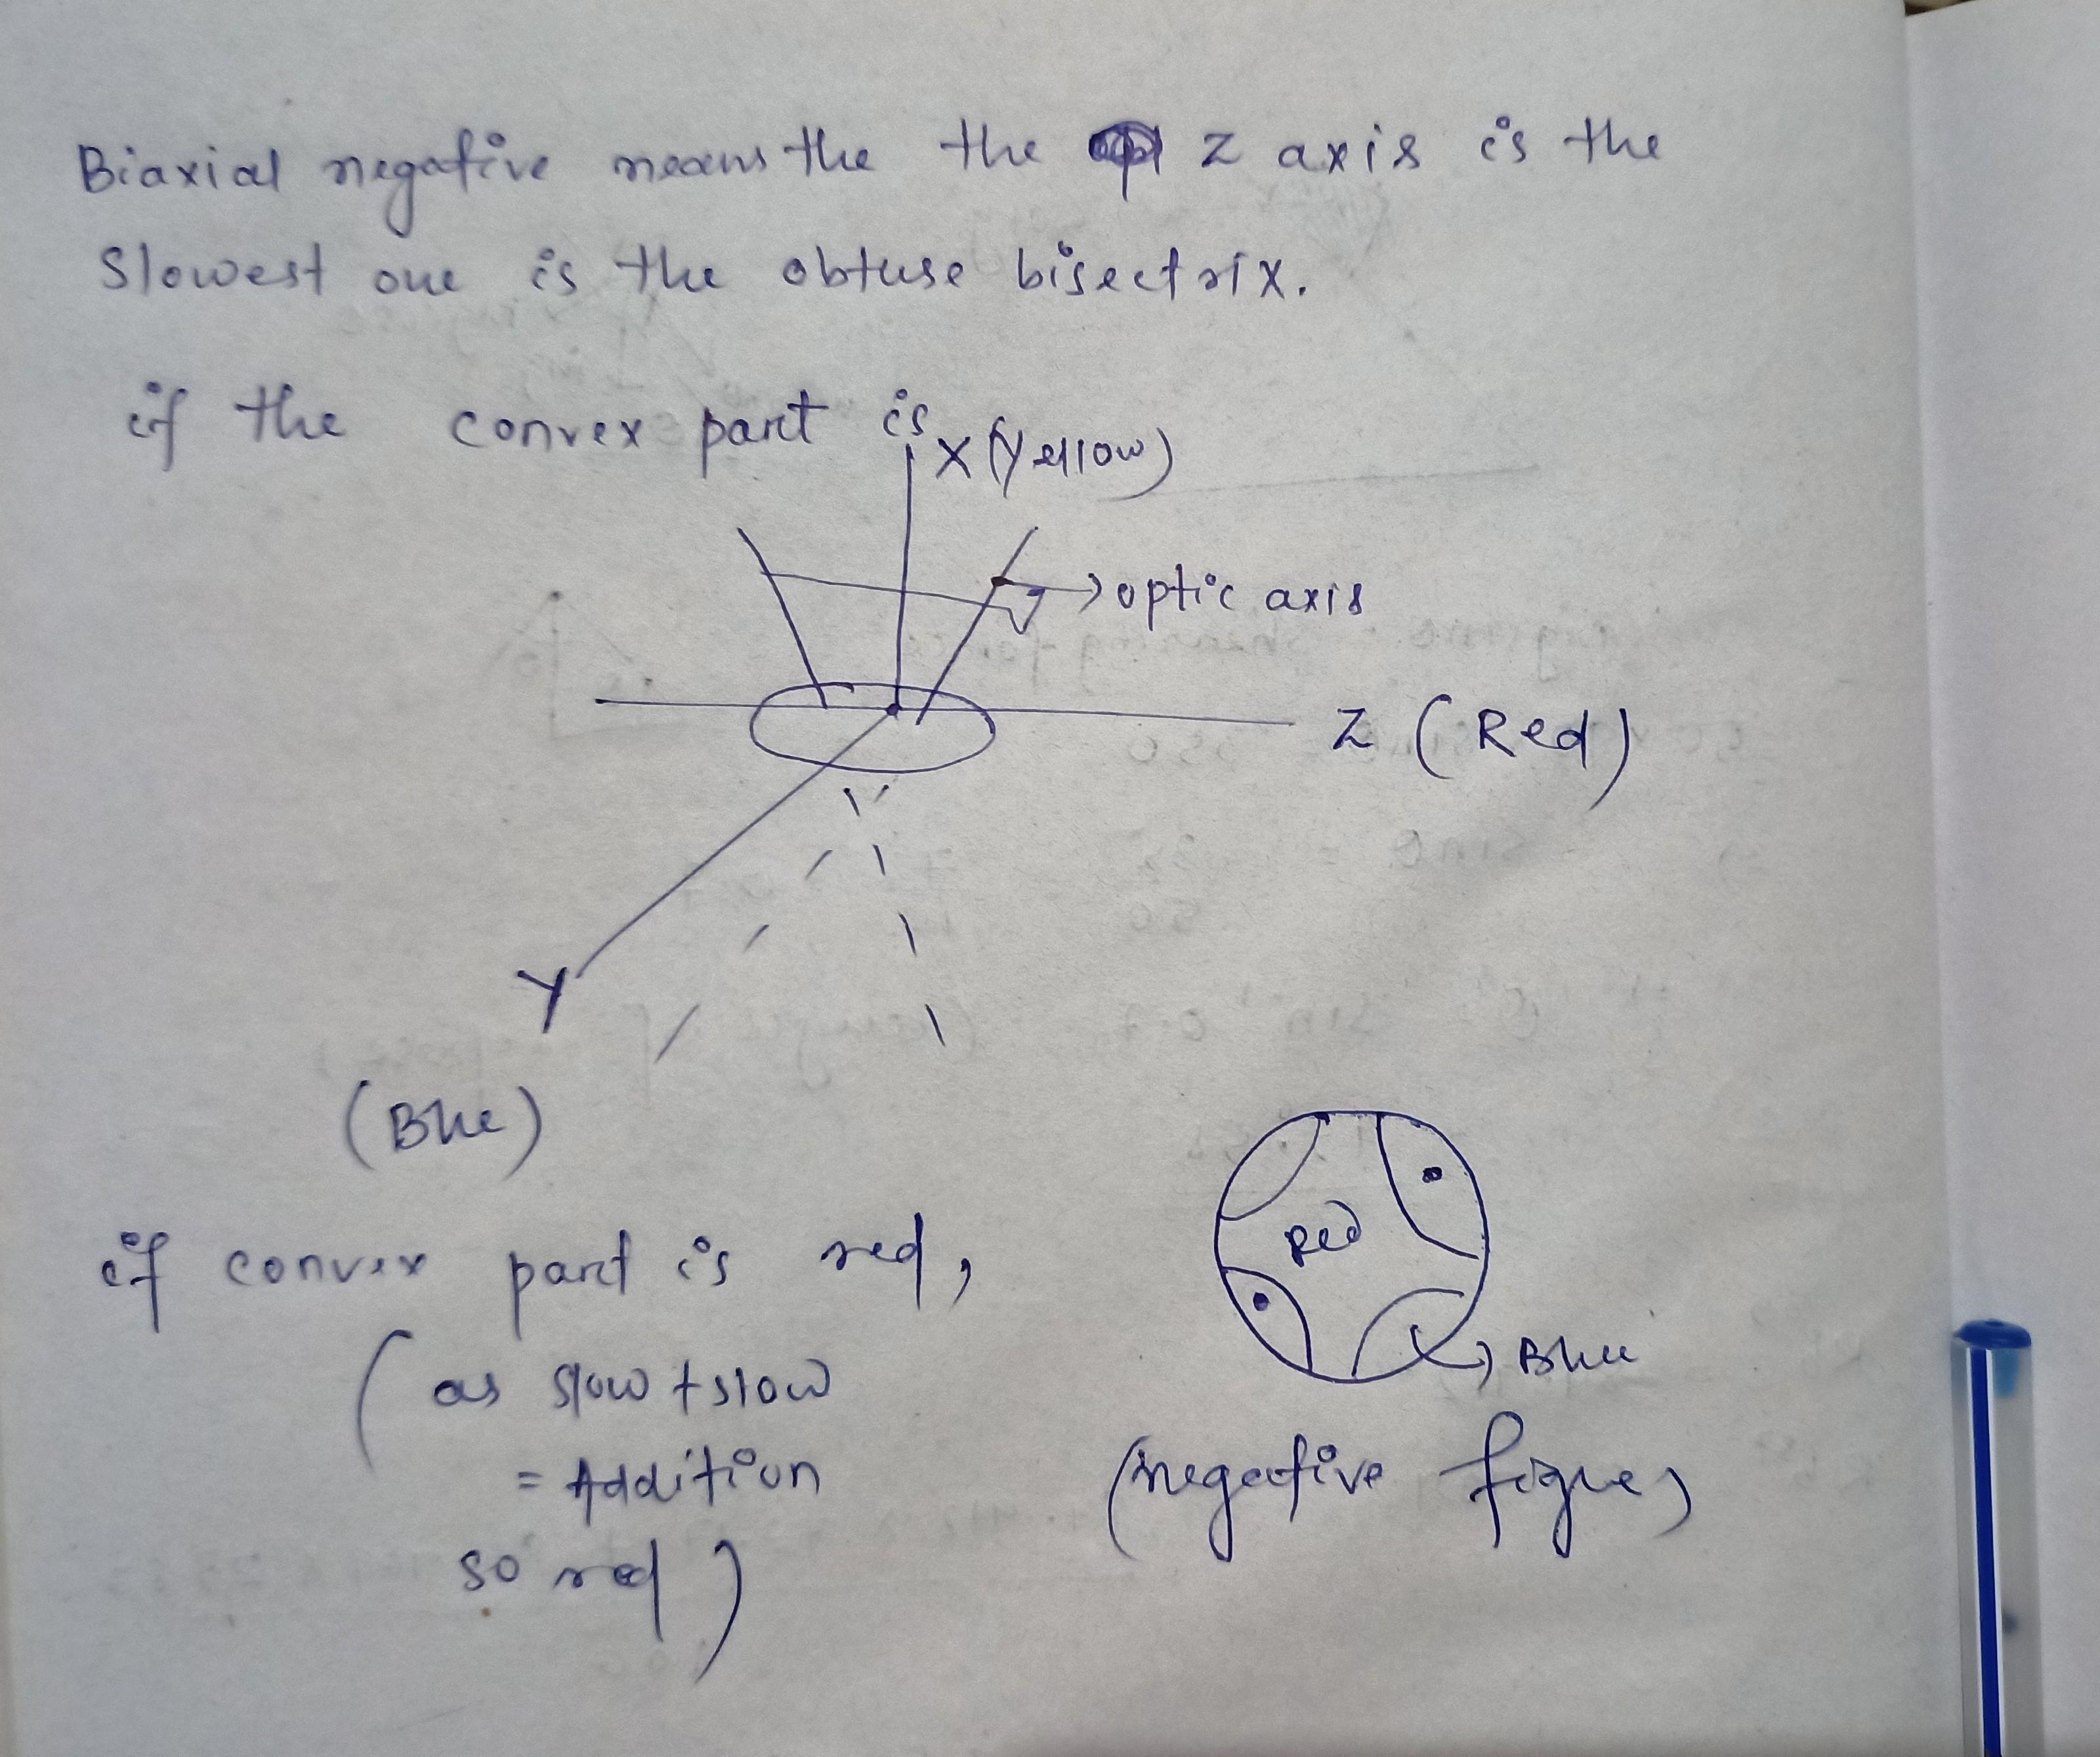 Biaxial negative means the the z axis is the
Slowest one is the obtuse bisectrix.
if the convex part is
X (Yellow)
optic axis
Z (Red)
Y
(Blue)
if convex part is red,
(as slow + slow
= Addition
so red)
Red
Blue
(negative figure)